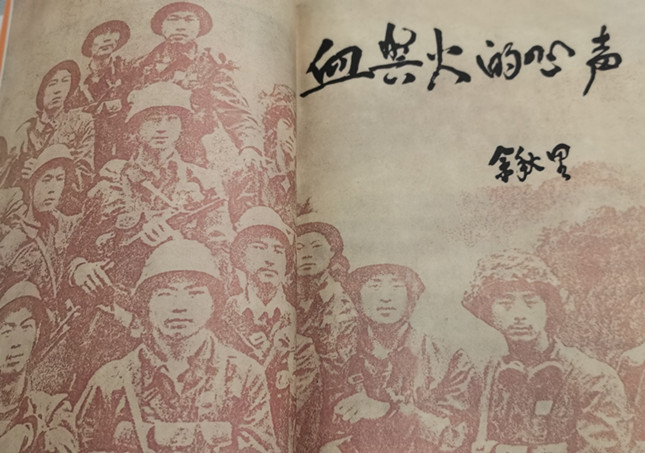 血与火的吟声
余秋里